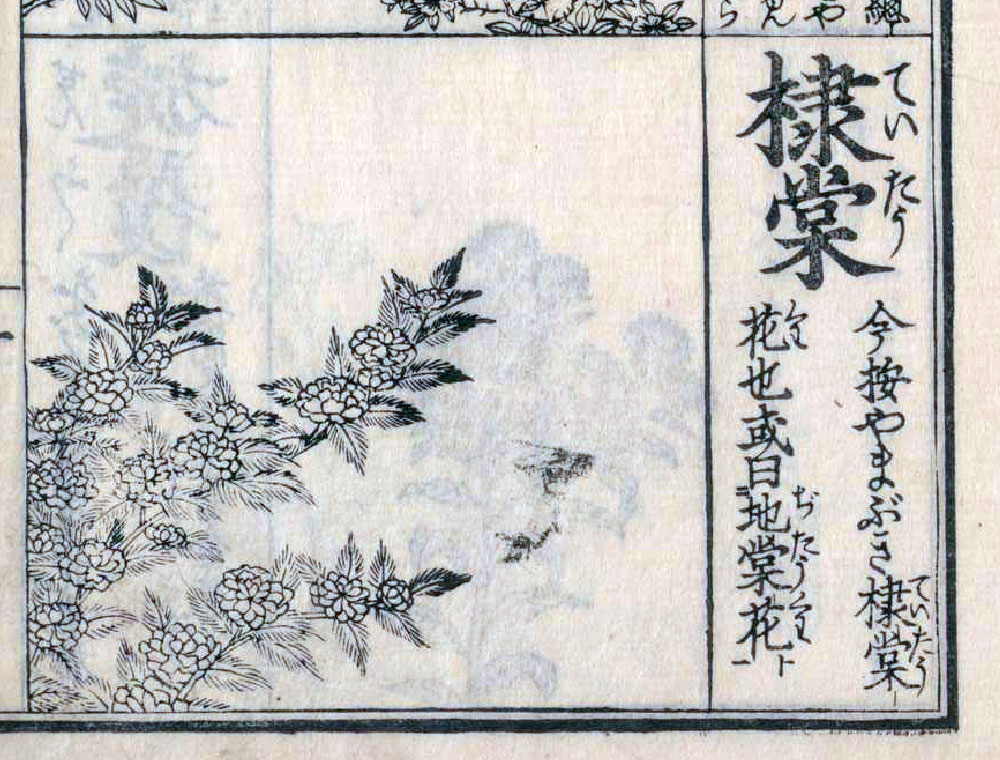 棣棠
ていたう
今按やまぶき棣棠
ていたう
花也或曰地棠花
くわ
ぢたうくわ
ト